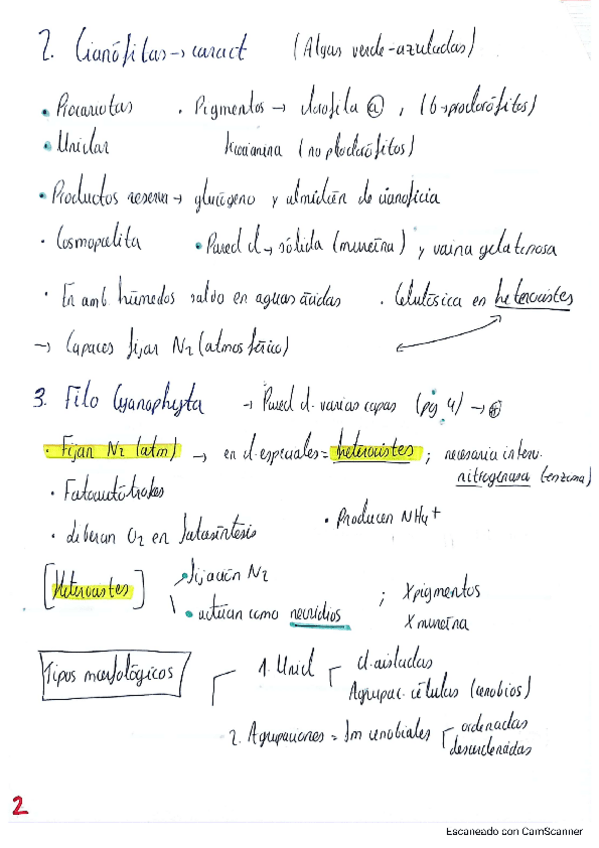 2. Cianófilas → caract (Algas verde-azuladas)
• Procariotas • Pigmentos → clorofila ⓐ, (b → proclorófitos)
• Unicelar ficocianina (no ploclorófitos)
• Productos reserva → glucógeno y almidón de cianofícia
• Cosmopolita • Pared cl → sólida (mureína) y vaina gelatinosa
• En amb. húmedos salvo en aguas ácidas • Celulósica en heterocistes
→ Capaces fijar N2 (atmosférico)
3. Filo Cyanophyta → Pared cl. varias capas (pg 4) →
• Fijan N2 (atm) → en cl. especiales = heterocistes; necesaria interv.
nitrogenasa (enzima)
• Fotoautótrofos
• Liberan O2 en fotosíntesis • Producen NH4+
[Heterocistes] • fijación N2
• actúan como necridios ; X pigmentos
X mureína
Tipos morfológicos 1. Unicl cl. aisladas
Agrupac. células (cenobios)
2. Agrupaciones = Fm cenobiales ordenadas
desordenadas
2
Escaneado con CamScanner